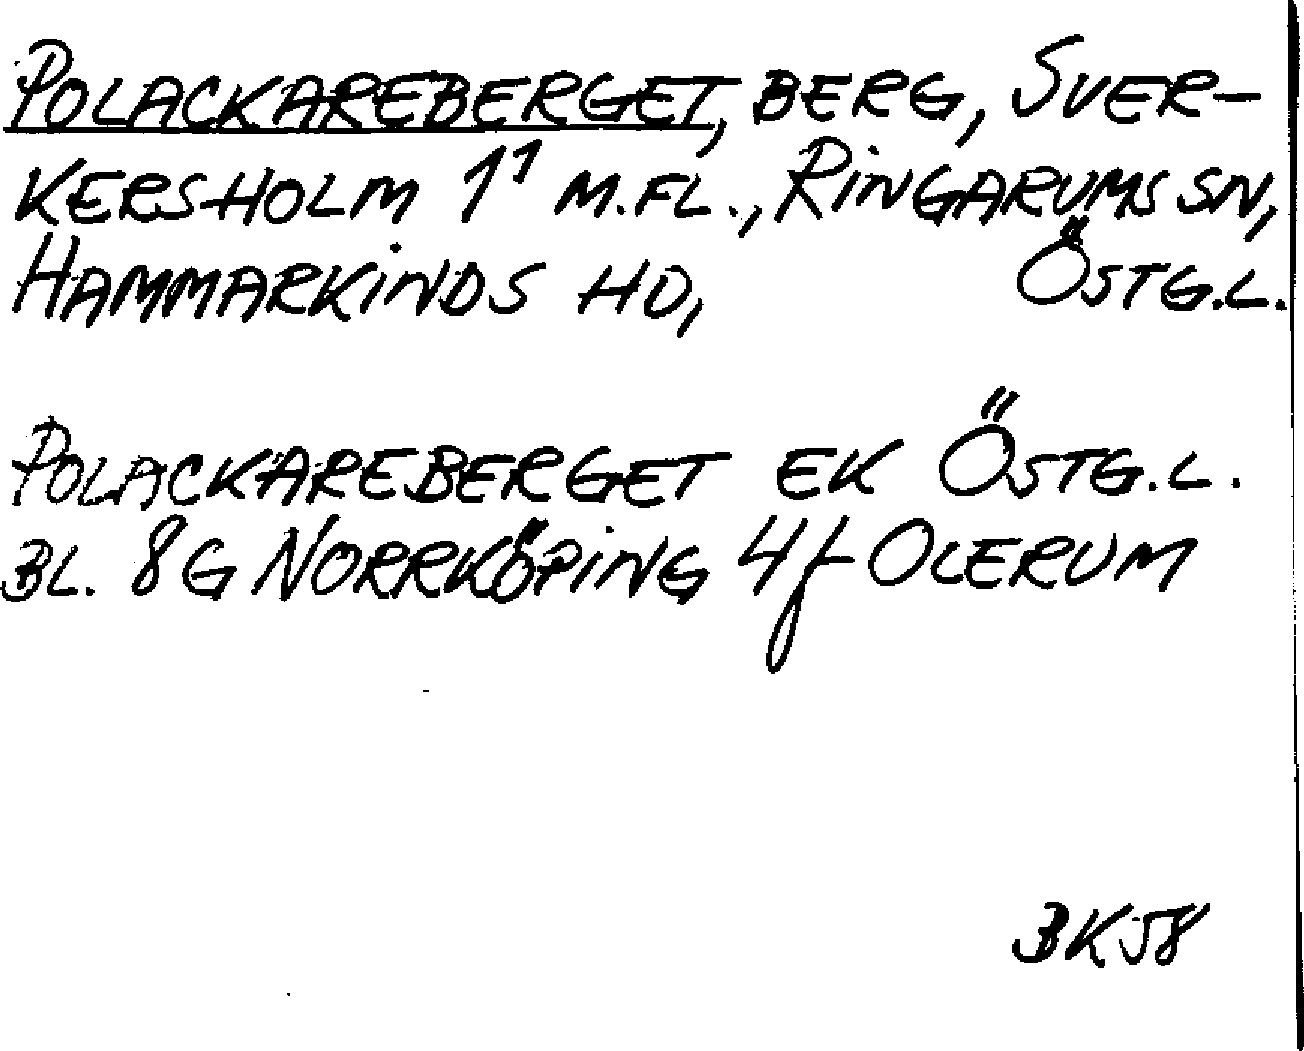 POLACKAREBERGET, BERG, SVER-
KERSHOLM 1¹ M.FL., RINGARUMS SN,
HAMMARKINDS HD, ÖSTG.L.
POLACKAREBERGET EK ÖSTG.L.
BL. 8G NORRKÖPING 4f OLERUM
BK58